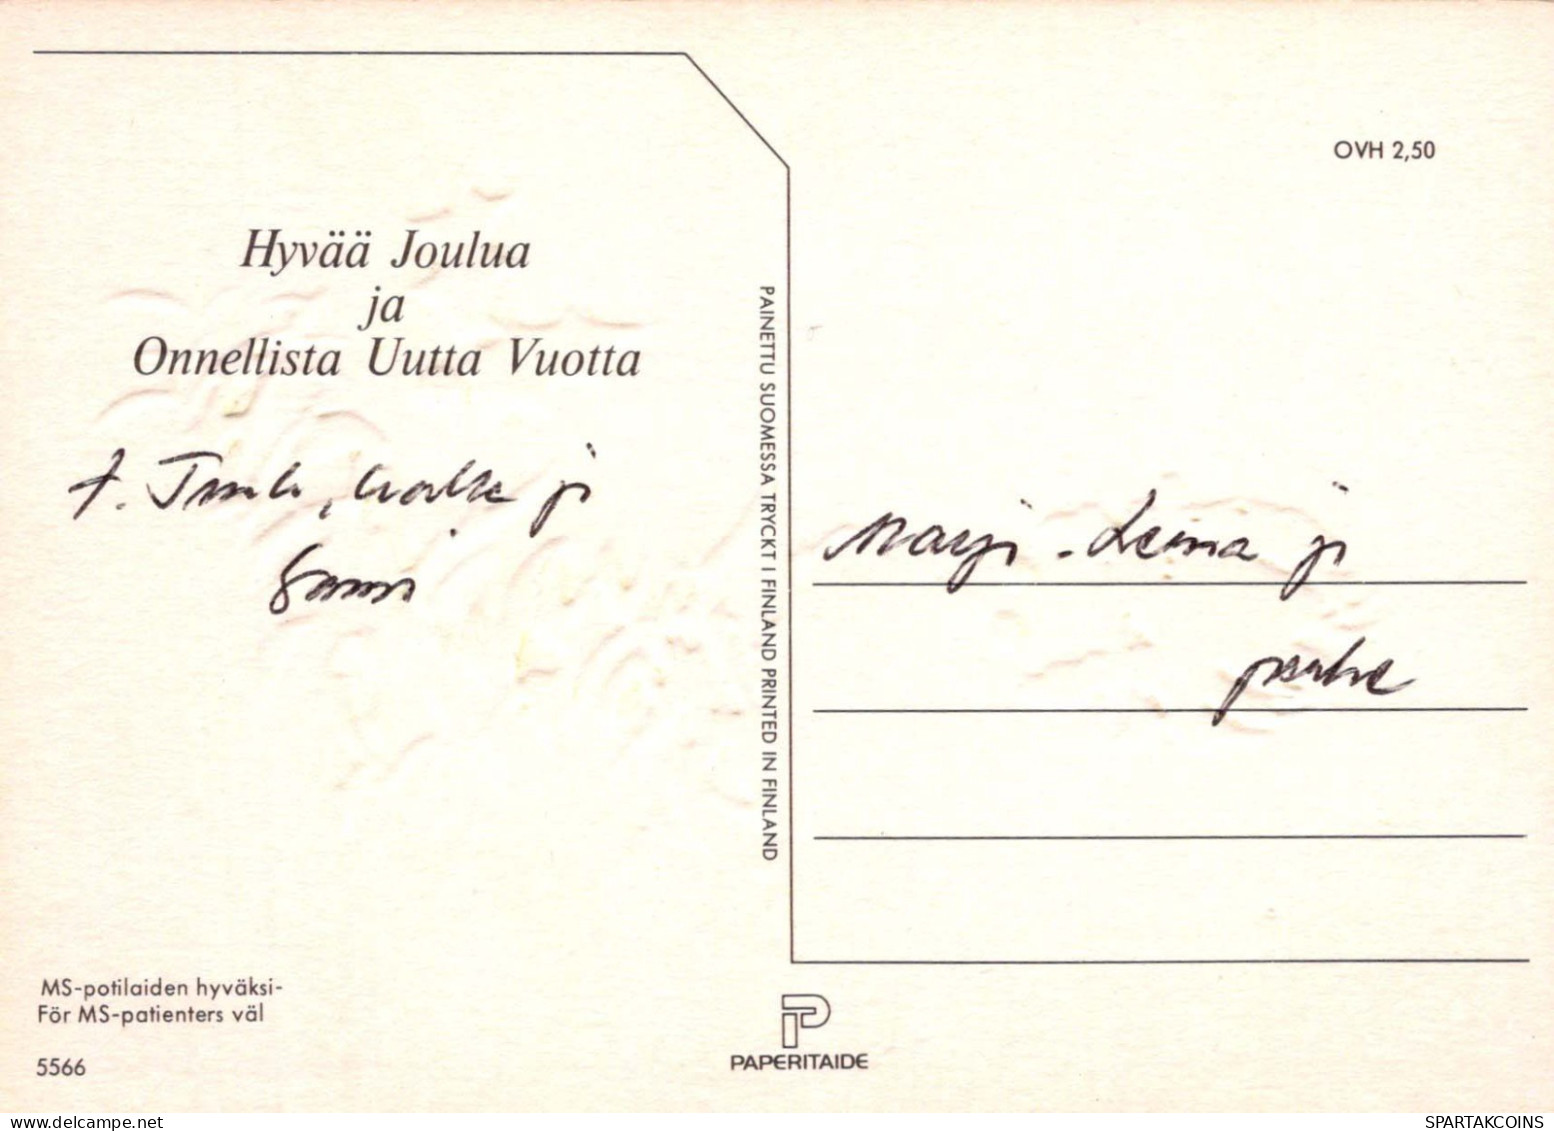 Hyvää Joulua
ja
Onnellista Uutta Vuotta
OVH 2,50
PAINETTU SUOMESSA TRYCKT I FINLAND PRINTED IN FINLAND
Marji-Leena ja
perhe
MS-potilaiden hyväksi-
För MS-patienters väl
5566
PAPERITAIDE
www.delcampe.net
SPARTAKCOINS